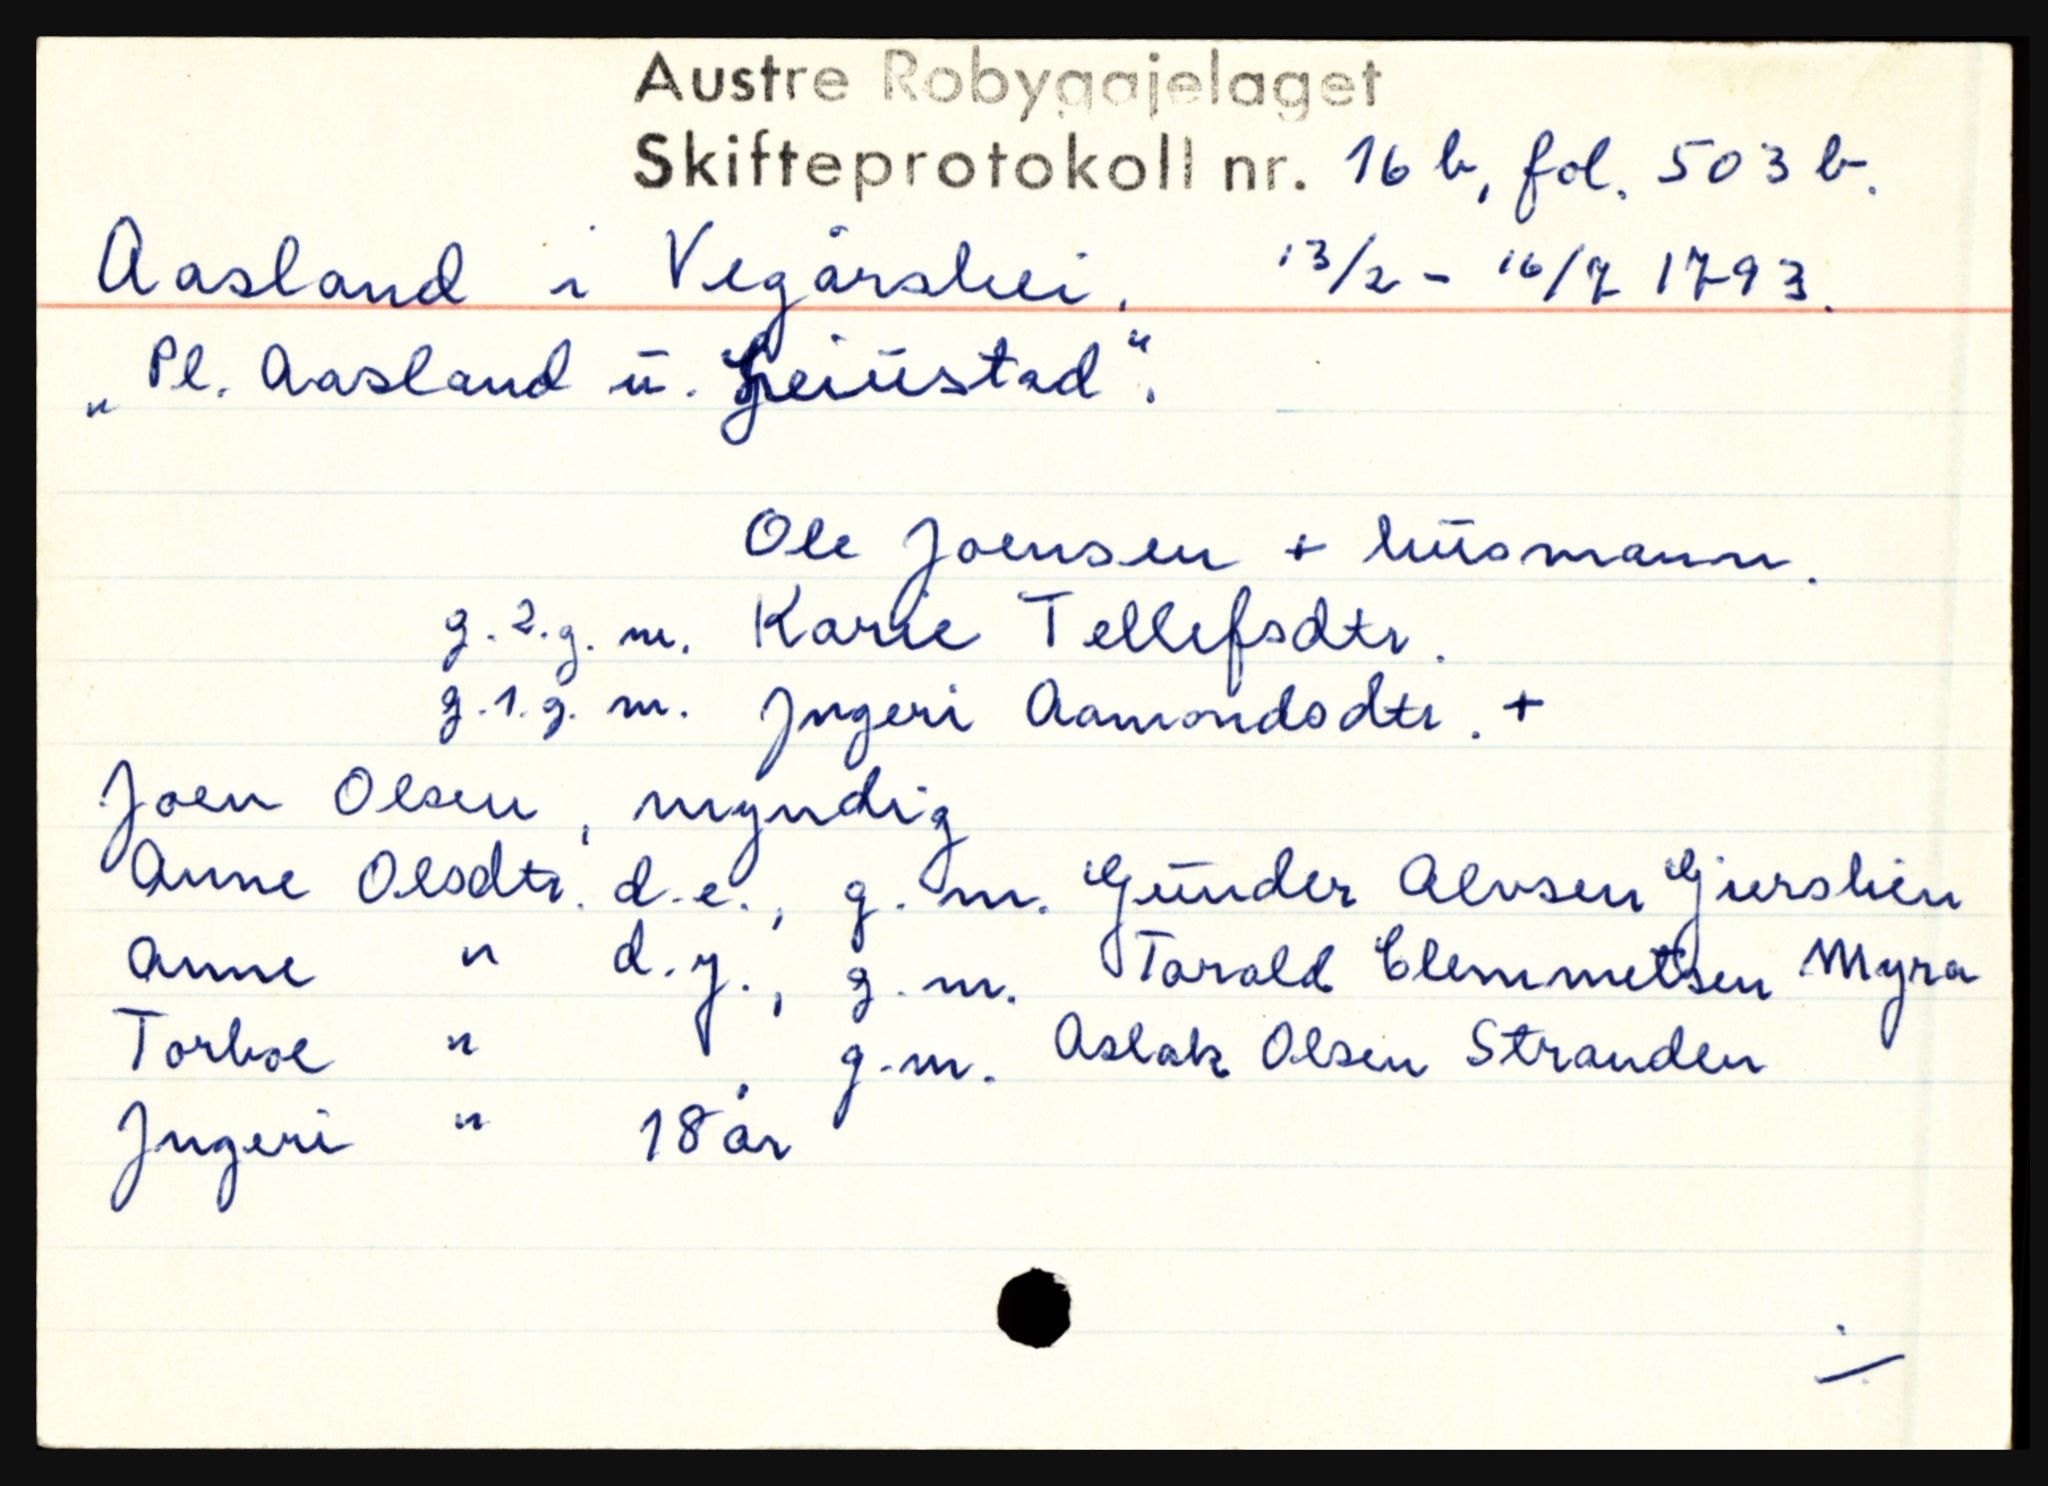 Austre Robygajelaget
Skifteprotokoll nr. 16 b, fol. 503 b.
Aasland i Vegårshei. 13/2 - 16/7 1793.
„Pl. Aasland u. Leiustad“.
Ole Joensen + husmann.
g. 2. g. m. Karie Tellefsdtr.
g. 1. g. m. Jngeri Aamondsdtr. +
Joen Olsen, myndig
Anne Olsdtr. d.e., g. m. Gunder Alvsen Giershien
Anne " d.y., g. m. Tarald Clemmetsen Myra
Torboe " , g.m. Aslak Olsen Stranden
Jngeri " 18 år